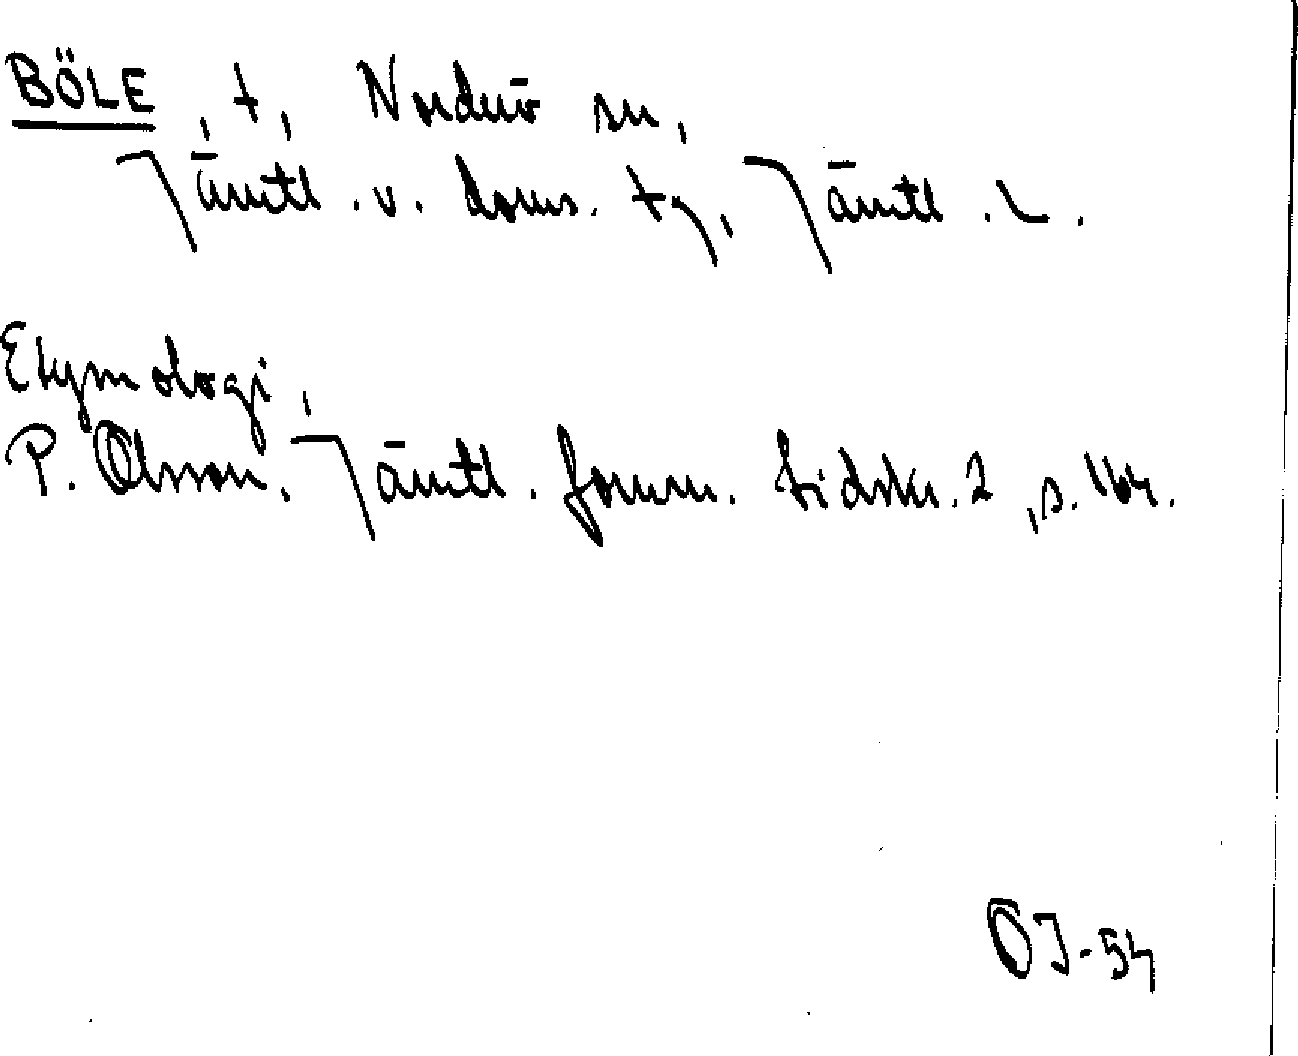 BÖLE, t, Norderö sn,
Jämtl. v. doms. tg, Jämtl. L.
Etymologi,
P. Olsson, Jämtl. fornm. tidskr. 2, s. 164.
OJ-54